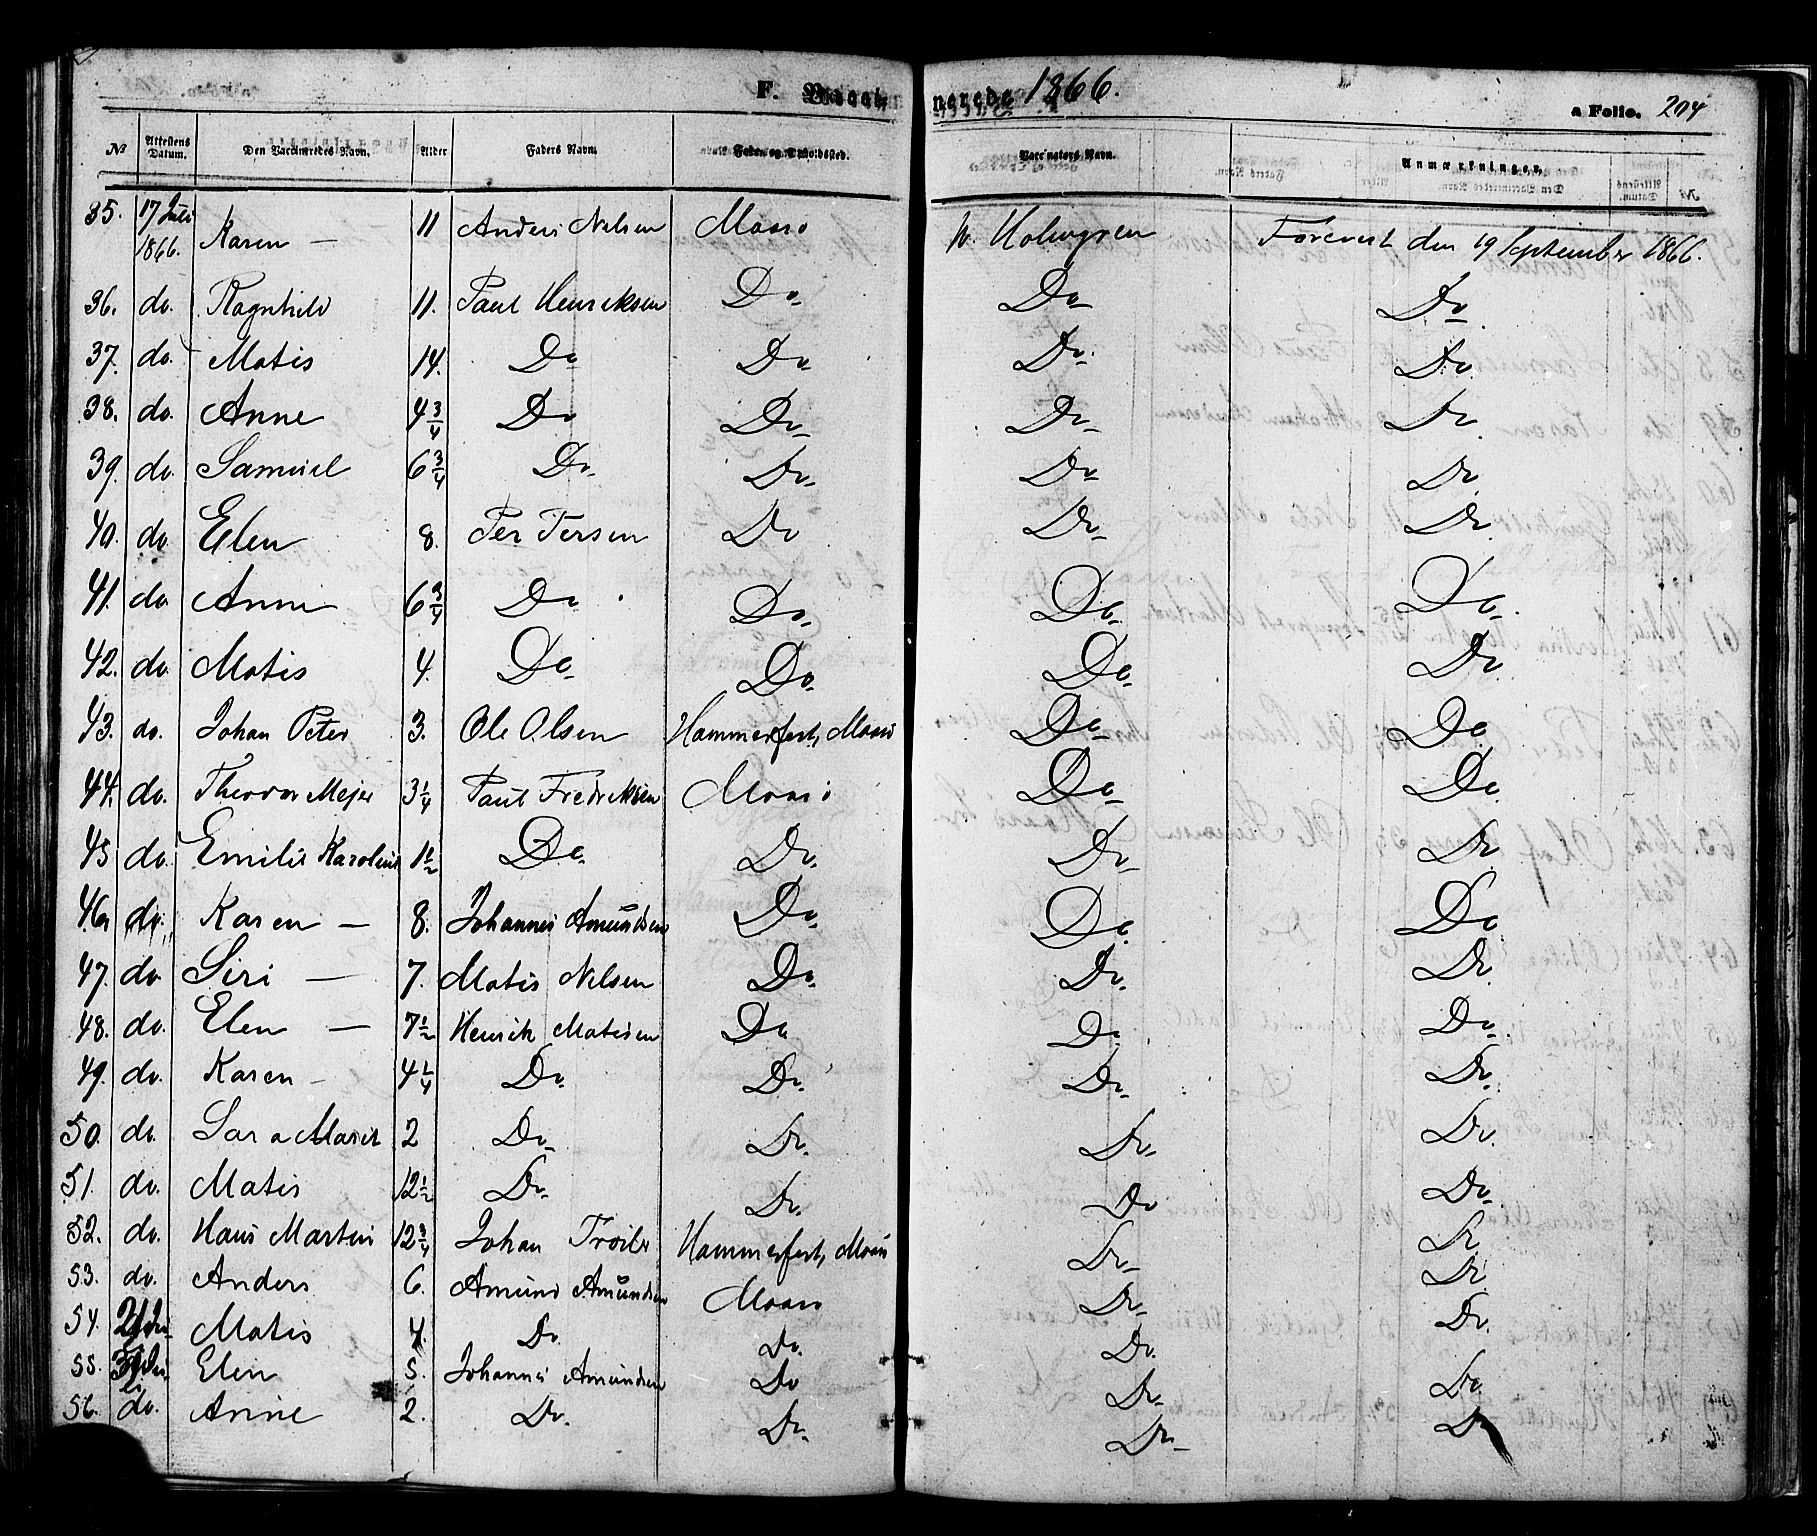 F. Vaccinerede 1866.
a Folio. 204
No Attestens Datum. Den Vaccineredes Navn. Alder Faders Navn. Føde- og Opholdssted. Vaccinators Navn. Anmærkninger.
35. 17 Juli 1866. Karen — 11 Anders Nilsen Maasö Holmgren Foreviist den 19 September 1866.
36. do. Ragnhild 11. Paul Henriksen Do Do Do
37. do. Matis 14. Do Do Do Do
38. do. Anne 4 3/4 Do Do Do Do
39. do. Samuel 6 3/4 Do Do Do Do
40. do Elen 8. Per Persen Do Do Do
41. do. Anne 6 3/4 Do Do Do Do
42. do. Matis 4. Do Do Do Do
43. do. Johan Peter 3. Ole Olsen Hammerfest, Maasö Do Do
44. do. Theodor Mejer 3 1/4 Paul Fredriksen Maasö Do Do
45 do. Emilie Karoline 1 1/2 Do Do Do Do
46. do. Karen — 8. Johannes Amundsen Do Do Do
47. do Siri — 7. Matis Nilsen Do Do Do
48. do. Elen — 7 1/2 Henrik Matisen Do Do Do
49. do. Karen — 4 1/4 Do Do Do Do
50. do. Sara Marit 2 Do Do Do Do
51. do. Matis 12 1/2 Do Do Do Do
52. do. Hans Martin 12 3/4 Johan Hammerfest, Maasö Do Do
53. do. Anders 6. Amund Amundsen Maasö Do Do
54. Matis 4. Do Do Do Do
55. Elen 5. Johannes Amundsen Do Do Do
56. do. Anne 2. Do. Do Do Do